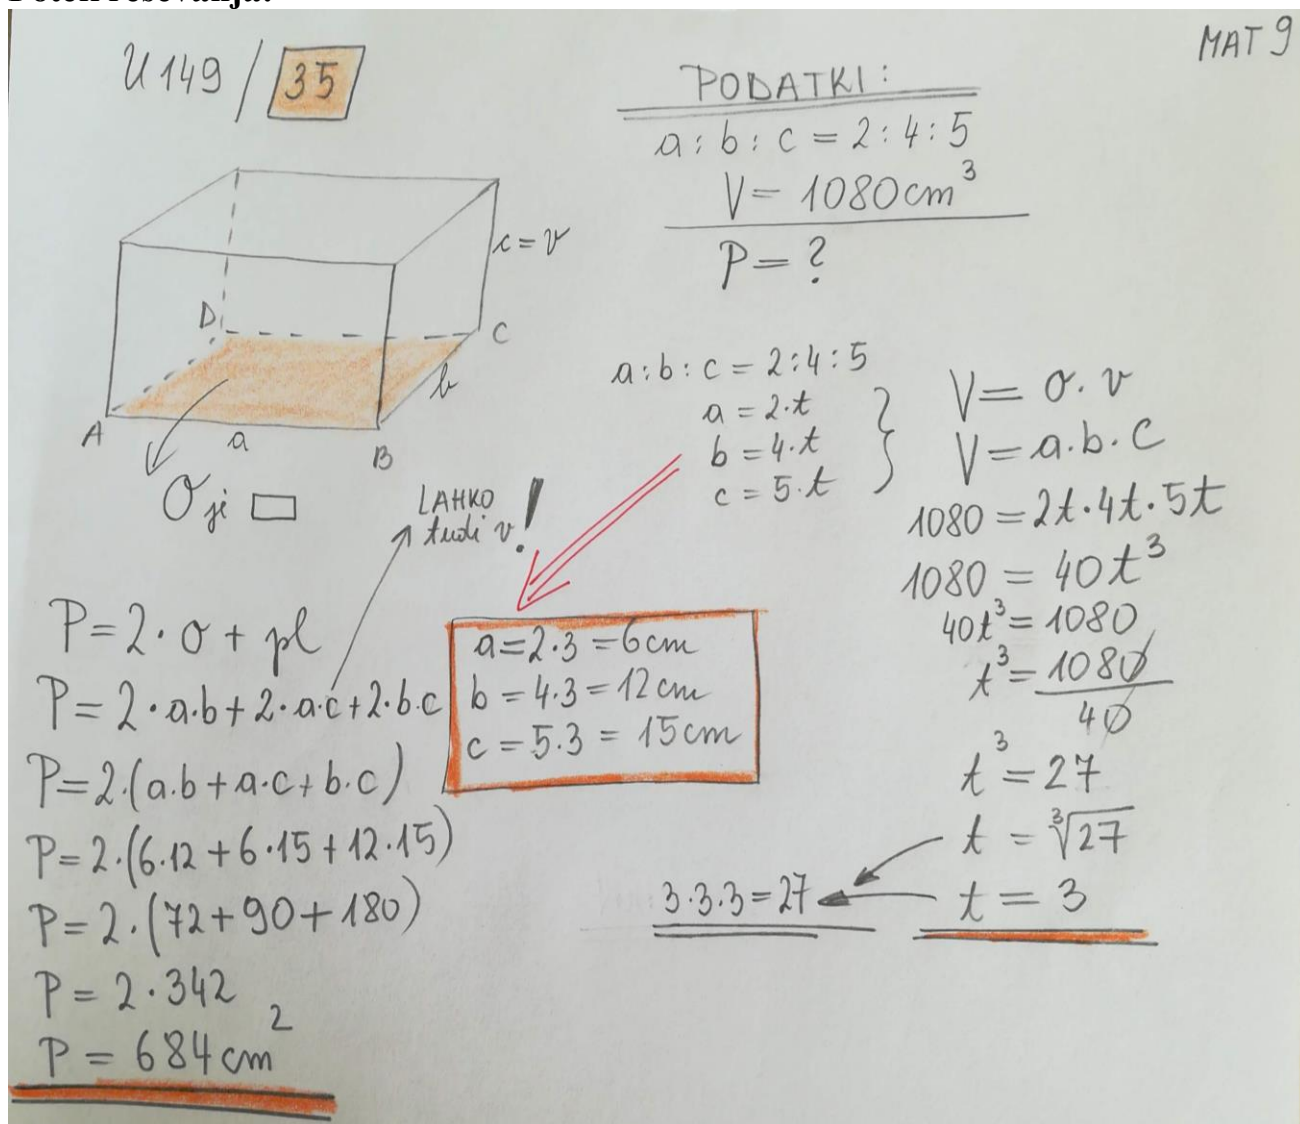 Potek reševanja:
MAT 9
U 149 / 35
PODATKI:
a : b : c = 2 : 4 : 5
V = 1080 cm³
P = ?
c = v
D
C
b
A
a
B
O je ▭
a : b : c = 2 : 4 : 5
a = 2·t
b = 4·t
c = 5·t
V = O·v
V = a·b·c
1080 = 2t·4t·5t
1080 = 40t³
40t³ = 1080
t³ = 1080/40
t³ = 27
t = ∛27
t = 3
3·3·3 = 27
LAHKO
tudi v!
a = 2·3 = 6cm
b = 4·3 = 12cm
c = 5·3 = 15cm
P = 2·O + pl
P = 2·a·b + 2·a·c + 2·b·c
P = 2·(a·b + a·c + b·c)
P = 2·(6·12 + 6·15 + 12·15)
P = 2·(72 + 90 + 180)
P = 2·342
P = 684 cm²